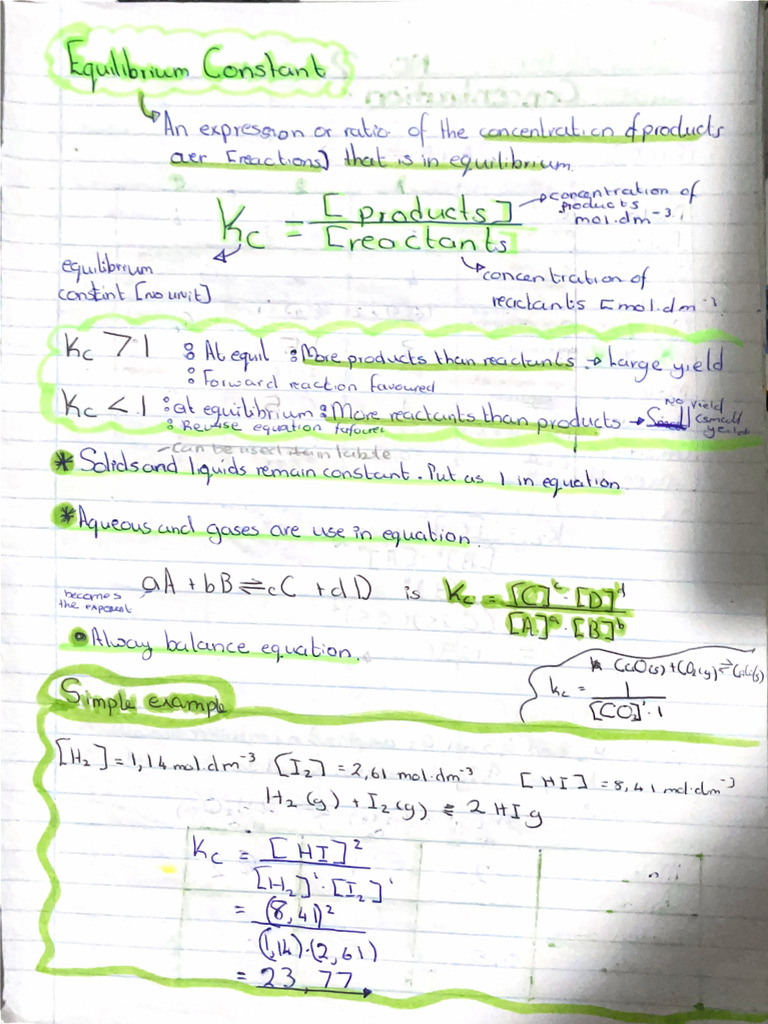 Equilibrium Constant
An expression or ratio of the concentration of products
aer [reactions] that is in equilibrium.
Kc = [products] / [reactants]
concentration of
products
mol.dm⁻³
equilibrium
constant [no unit]
concentration of
reactants [mol.dm⁻³
Kc > 1 : At equil : More products than reactants → Large yield
: Forward reaction favoured
Kc < 1 : at equilibrium : More reactants than products → Small
No yield
(small
yield
: Reverse equation
- Can be used in table
* Solids and liquids remain constant. Put as 1 in equation
* Aqueous and gases are use in equation.
aA + bB ⇌ cC + dD is Kc = [C]ᶜ · [D]ᵈ / [A]ᵃ · [B]ᵇ
becomes
the exponent
• Alway balance equation.
CaO(s) + CO₂(g) ⇌
kc = 1 / [CO₂]¹ · 1
Simple example
[H₂] = 1,14 mol.dm⁻³ [I₂] = 2,61 mol.dm⁻³ [HI] = 8,41 mol.dm⁻³
H₂(g) + I₂(g) ⇌ 2HIg
Kc = [HI]² / [H₂]¹ · [I₂]¹
= (8,41)² / (1,14)·(2,61)
= 23,77